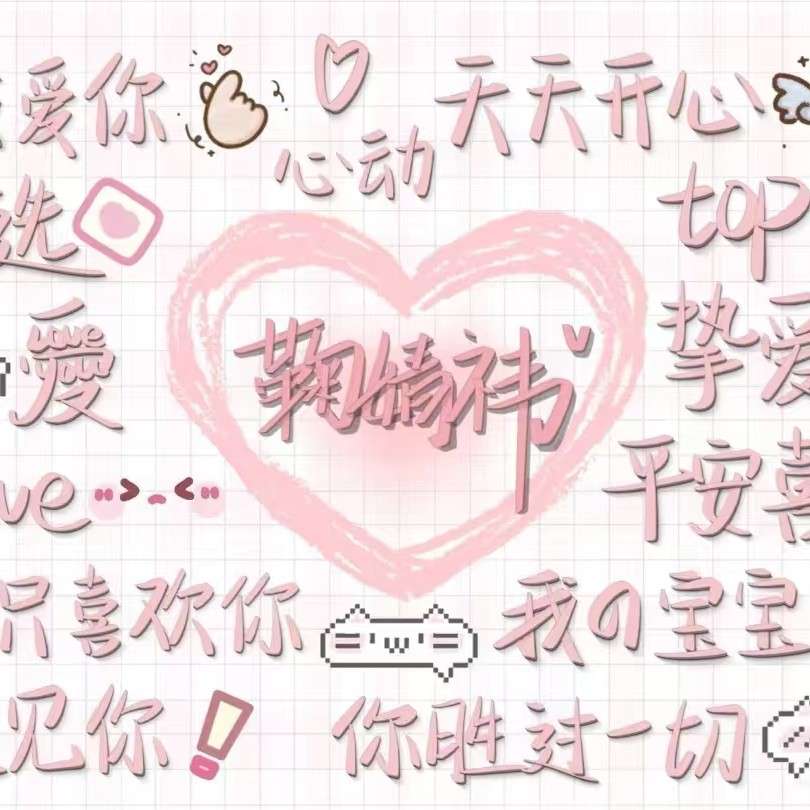 爱你
心动
天天开心
选
top
爱
love you
鞠婧祎
挚爱
平安喜
只喜欢你
我の宝宝
见你
你胜过一切